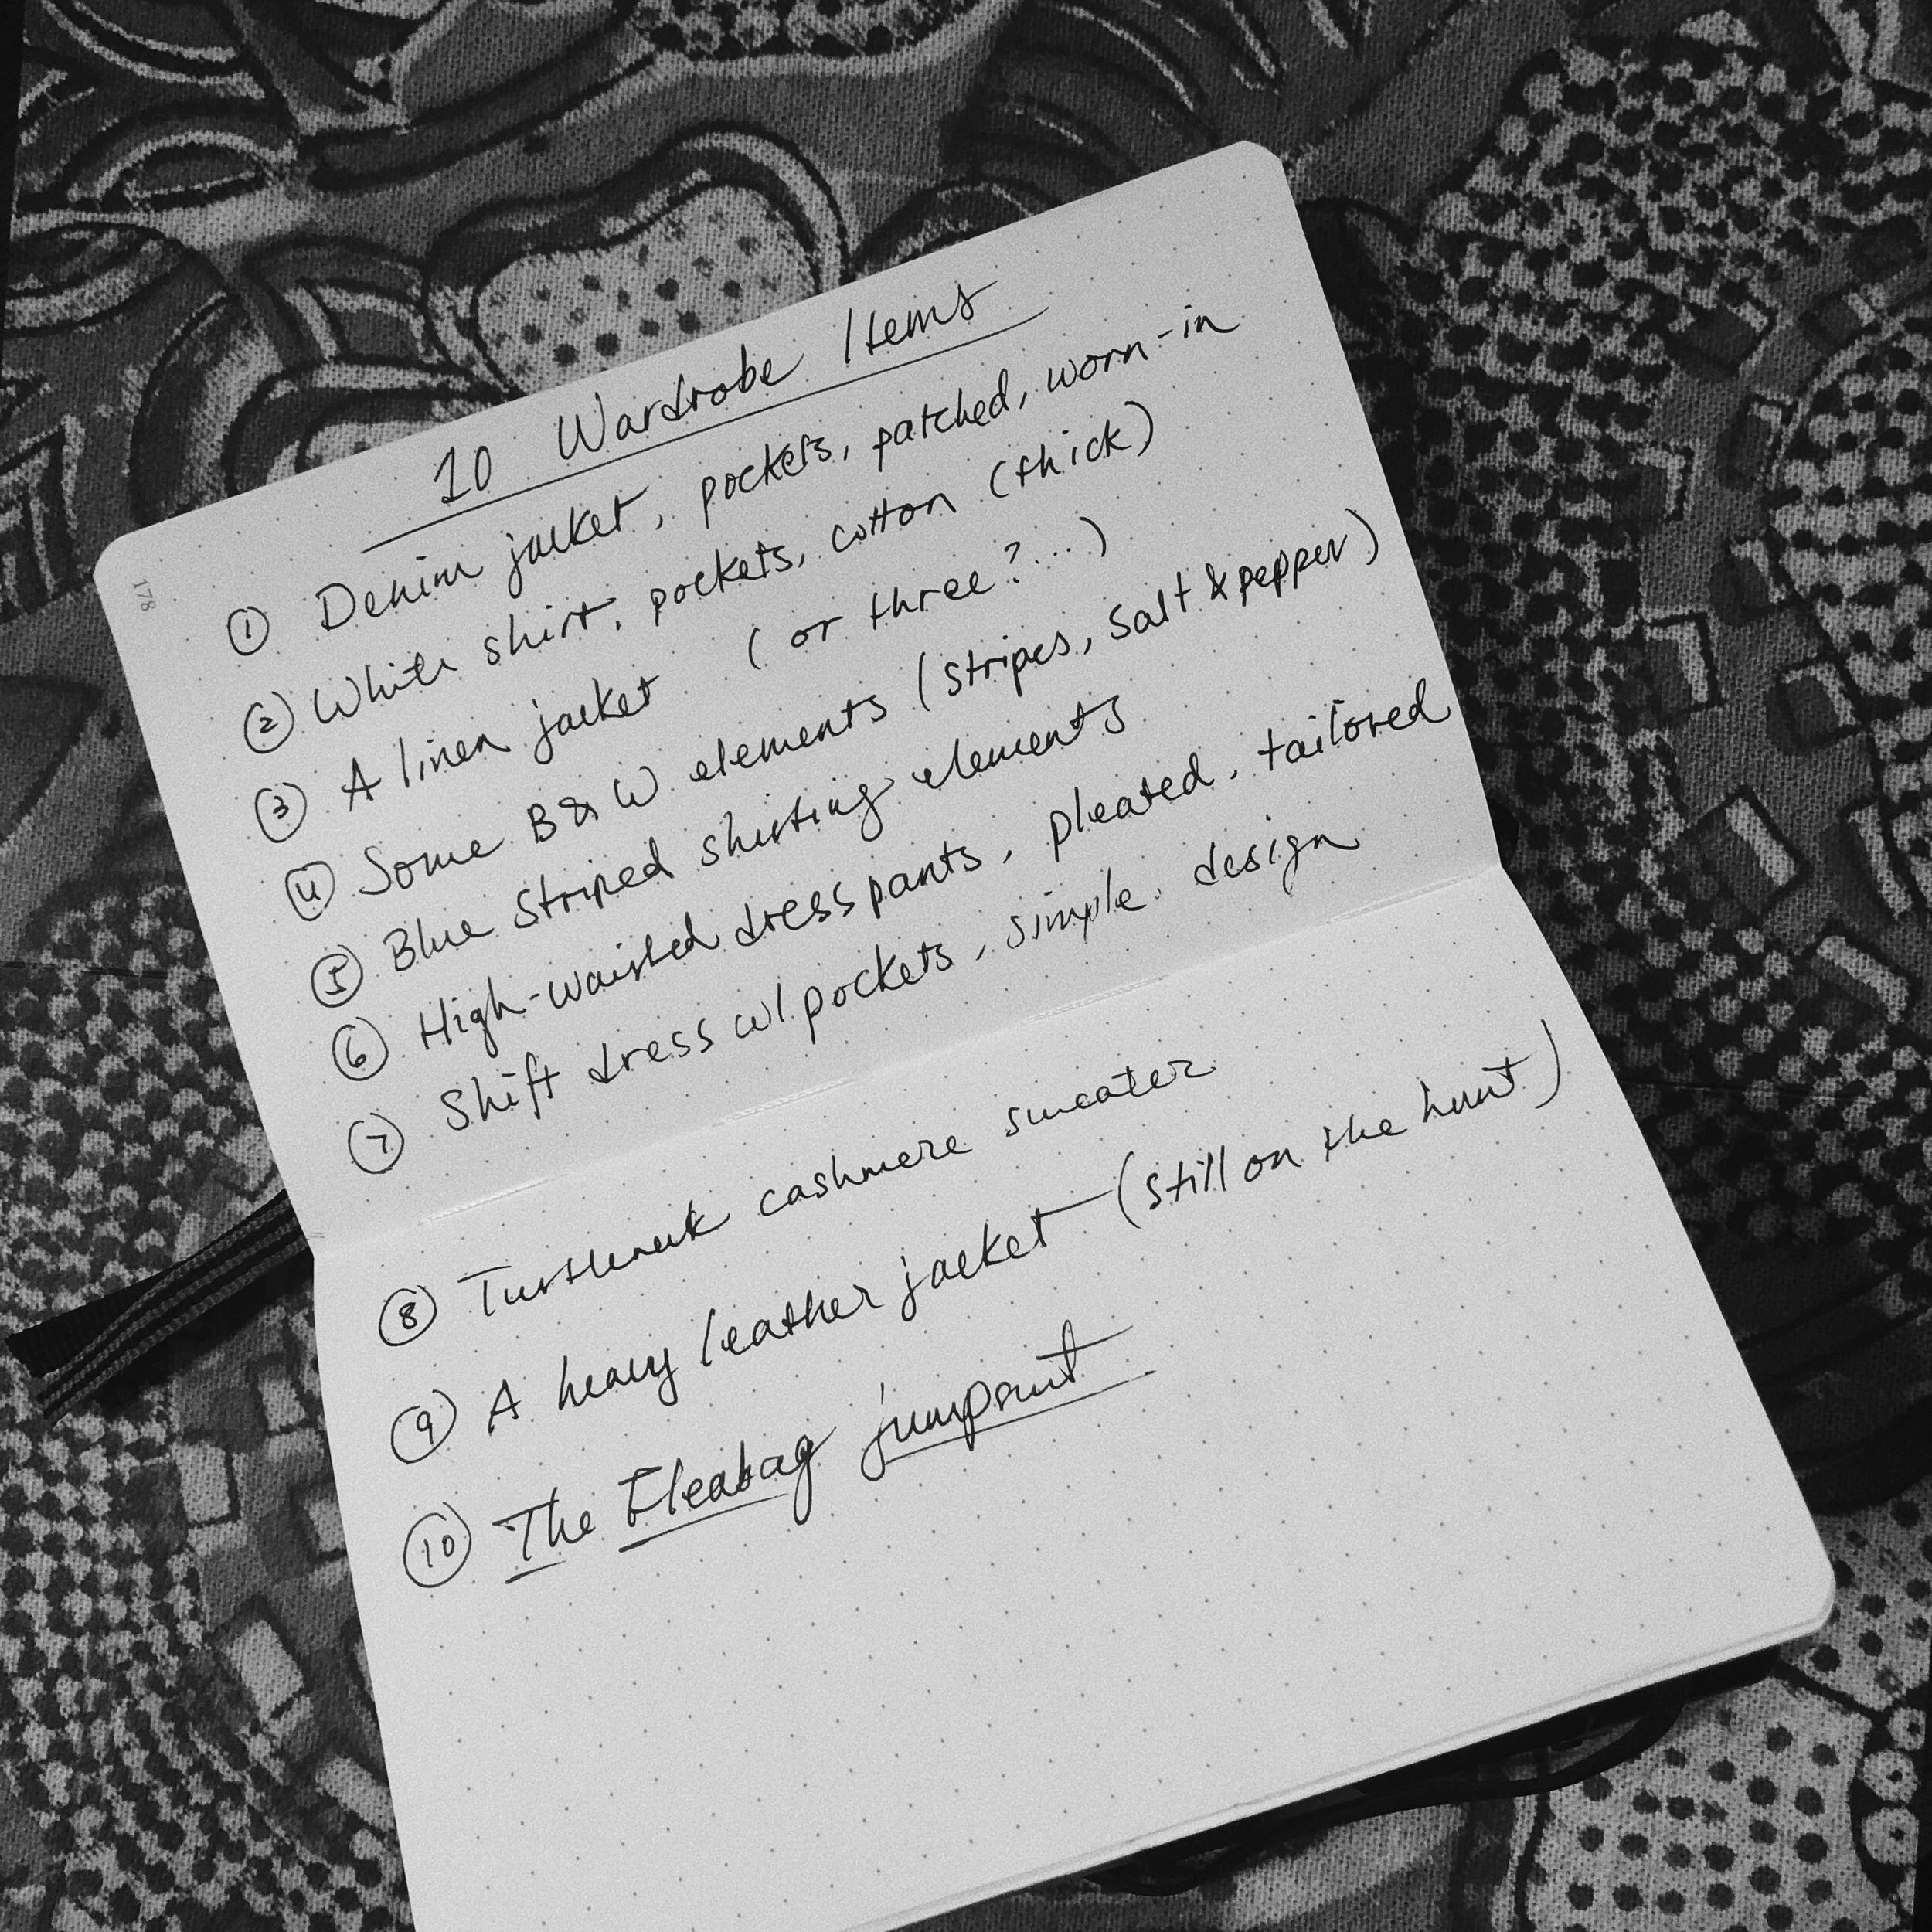 178
10 Wardrobe Items
① Denim jacket, pockets, patched, worn-in
② White shirt, pockets, cotton (thick)
③ A linen jacket (or three?...)
④ Some B&W elements (stripes, salt & pepper)
⑤ Blue striped shirting elements
⑥ High-waisted dress pants, pleated, tailored
⑦ Shift dress w/ pockets, simple design
⑧ Turtleneck cashmere sweater
⑨ A heavy leather jacket (still on the hunt)
⑩ The Fleabag jumpsuit